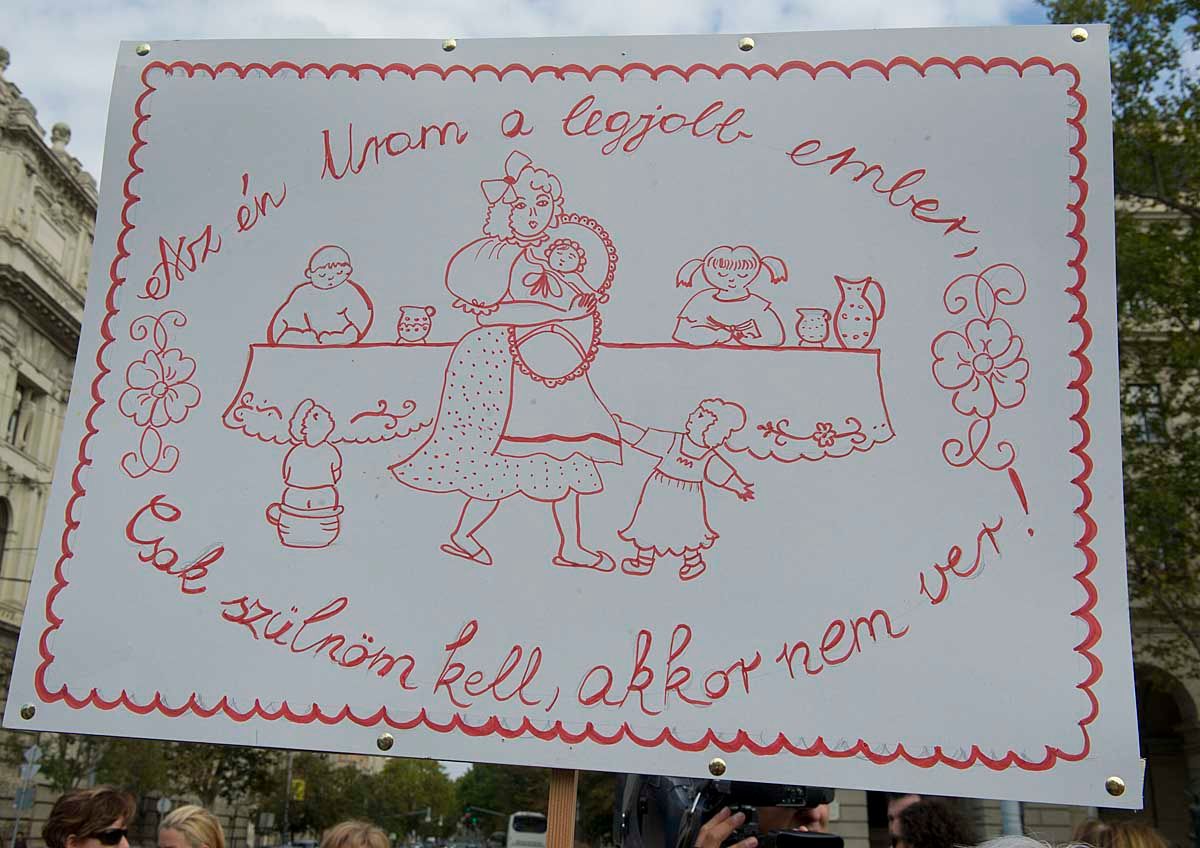 Az én Uram a legjobb ember,
Csak szülnöm kell, akkor nem ver!